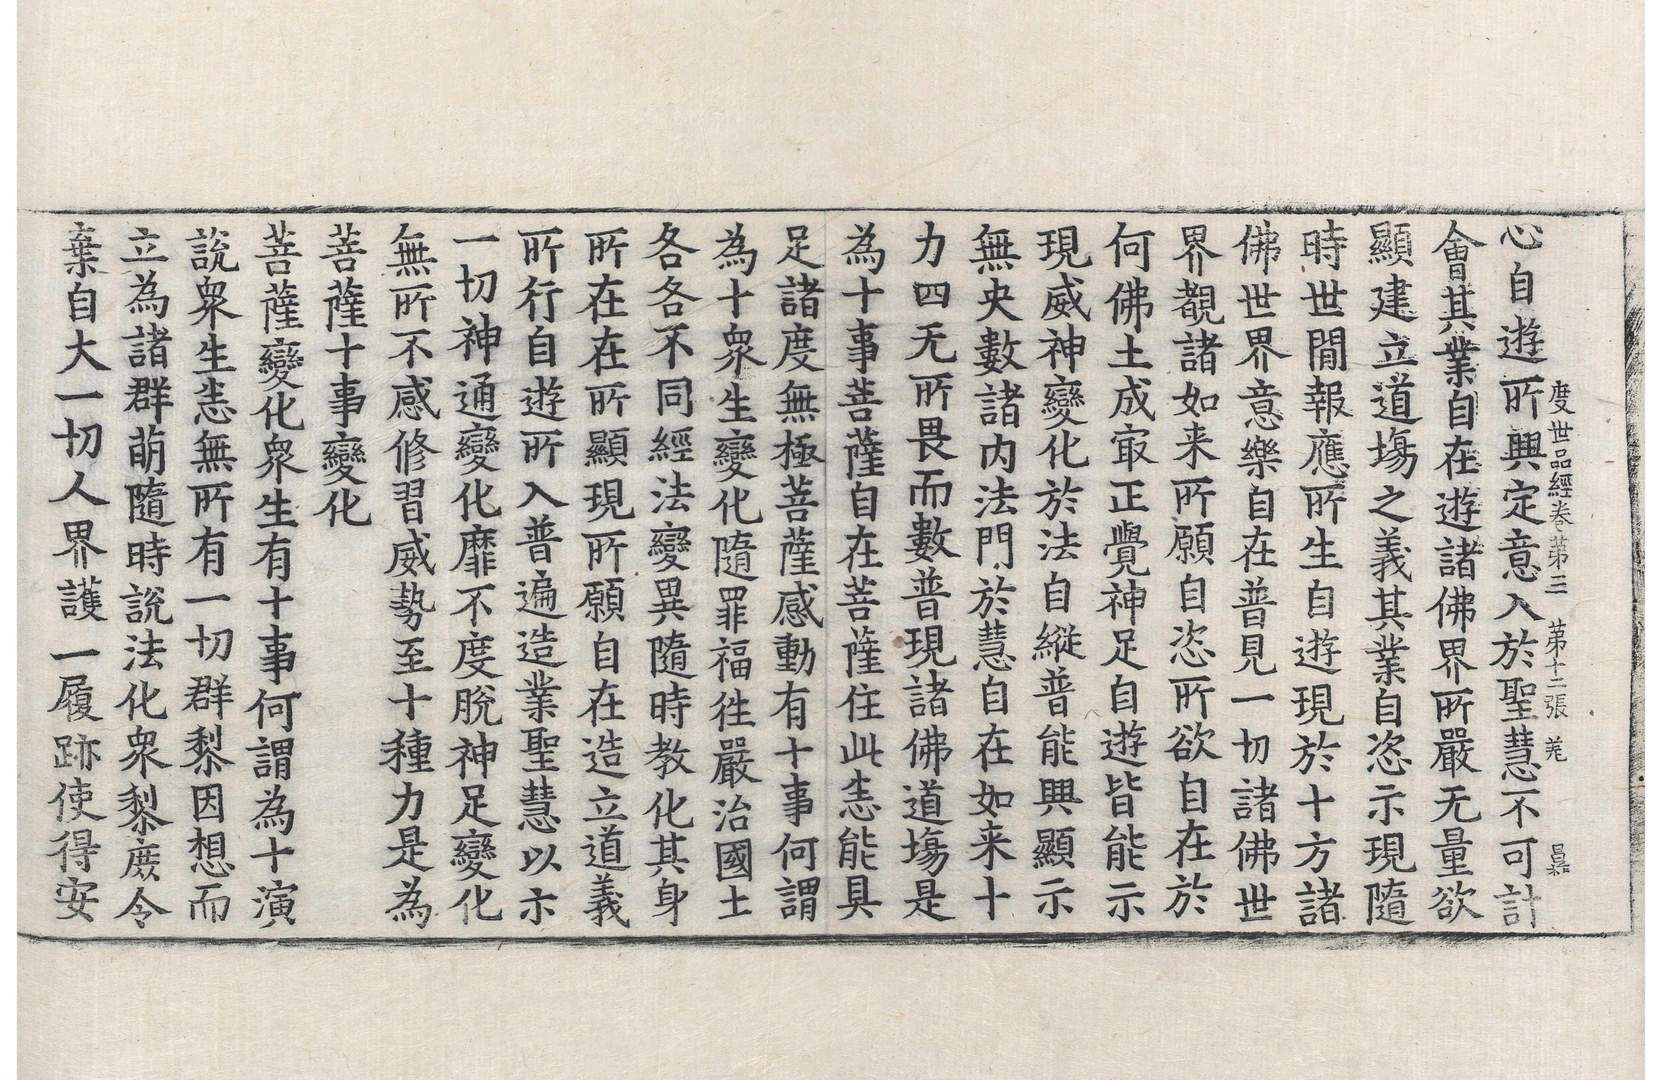 度世品經卷第三 第十二張 羗
心自遊所興定意入於聖慧不可計
會其業自在遊諸佛界所嚴无量欲
顯建立道場之義其業自恣示現隨
時世閒報應所生自遊現於十方諸
佛世界意樂自在普見一切諸佛世
界覩諸如来所願自恣所欲自在於
何佛土成㝡正覺神足自遊皆能示
現威神變化於法自縱普能興顯示
無央數諸内法門於慧自在如来十
力四无所畏而數普現諸佛道場是
為十事菩薩自在菩薩住此恚能具
足諸度無極菩薩感動有十事何謂
為十衆生變化隨罪福徃嚴治國土
各各不同經法變異隨時教化其身
所在在所顯現所願自在造立道義
所行自遊所入普遍造業聖慧以示
一切神通變化靡不度脫神足變化
無所不感修習威勢至十種力是為
菩薩十事變化
菩薩變化衆生有十事何謂為十演
說衆生恚無所有一切群黎因想而
立為諸群萌隨時說法化衆黎庶令
棄自大一切人界護一履跡使得安